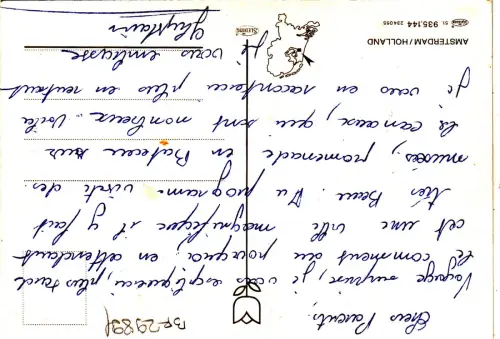 Chers Parents.
Voyage surprise, je vous expliquerai, plus tard
le comment du pourquoi. en attendant
c'est une ville magnifique il y fait
très Beau. Au program- visite des
musées, promenade en Bateau sur
les canaux, qui sont nombreux. Voilà
Je vous en raconterai plus en rentrant
Je vous embrasse
Ghyslain
Br-29894
AMSTERDAM / HOLLAND
SL 935.144